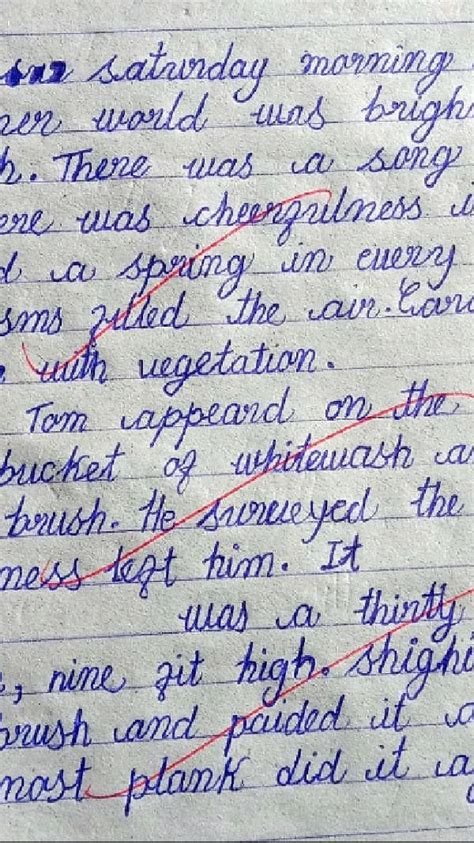 saturday morning
mer world was brigh
h. There was a song
ere was cheerfulness i
d a spring in every
sms filled the air. Car
with vegetation.
Tom appeard on the
bucket of whitewash a
brush. He surveyed the
ness left him. It
was a thirtly
, nine fit high. Shighi
brush and paided it a
most plank did it ag